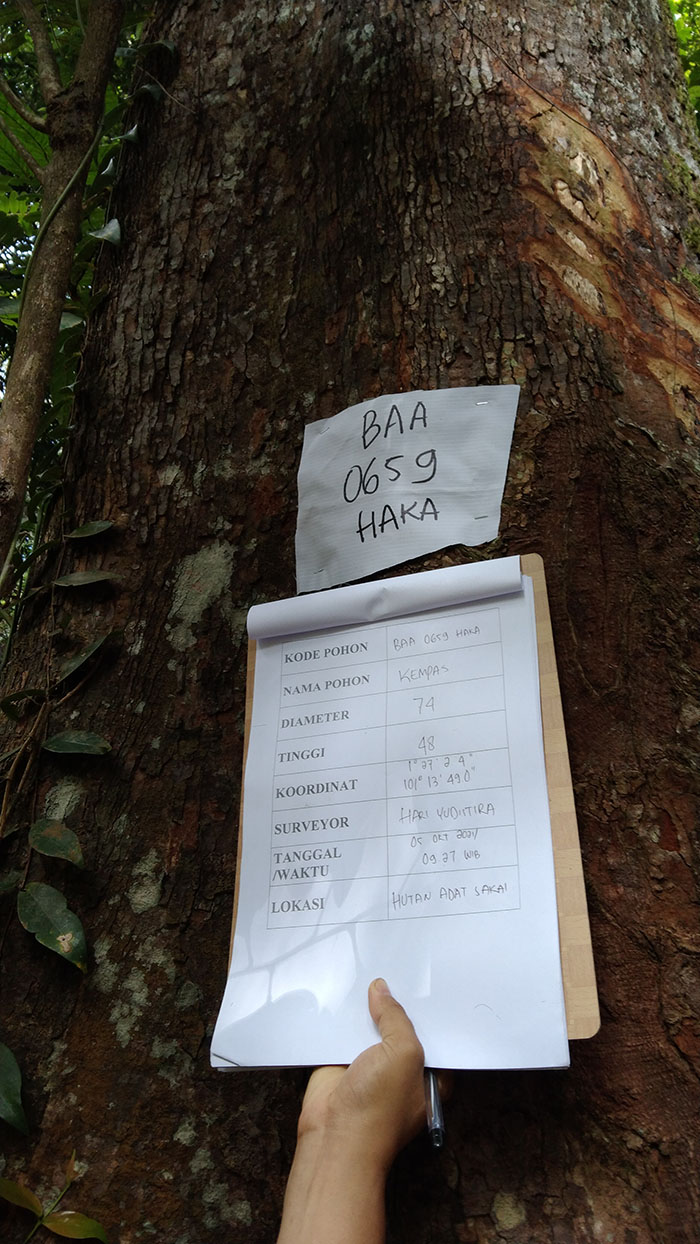 BAA
0659
HAKA
KODE POHON BAA 0659 HAKA
NAMA POHON KEMPAS
DIAMETER 74
TINGGI 48
KOORDINAT 1° 27' 2 4"
101° 13' 49 0"
SURVEYOR HARI YUDITIRA
TANGGAL 05 OKT 2021/
/WAKTU 09 27 WIB
LOKASI HUTAN ADAT SAKAI